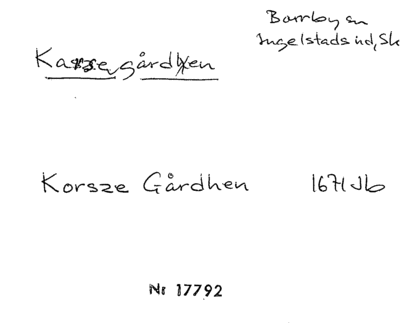 Borrby sn
Ingelstads hd, Sk
Karsegården
Korsze Gårdhen 1671 Jb
Nr 17792